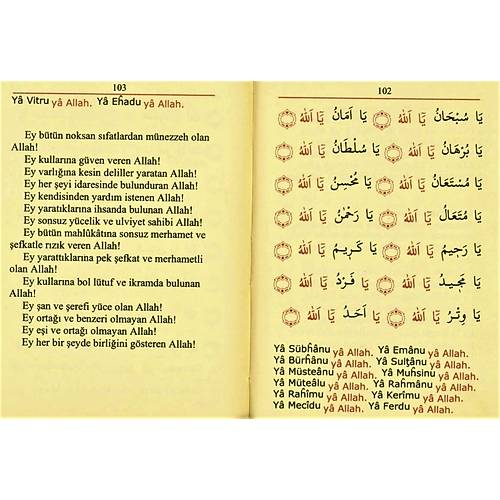 102
يَا سُبْحَانُ يَٓا اَللّٰهُ ۝ يَٓا اَمَانُ يَٓا اَللّٰهُ ۝
يَا بُرْهَانُ يَٓا اَللّٰهُ ۝ يَا سُلْطَانُ يَٓا اَللّٰهُ ۝
يَا مُسْتَعَانُ يَٓا اَللّٰهُ ۝ يَا مُحْسِنُ يَٓا اَللّٰهُ ۝
يَا مُتَعَالُ يَٓا اَللّٰهُ ۝ يَا رَحْمٰنُ يَٓا اَللّٰهُ ۝
يَا رَحِيمُ يَٓا اَللّٰهُ ۝ يَا كَرِيمُ يَٓا اَللّٰهُ ۝
يَا مَجِيدُ يَٓا اَللّٰهُ ۝ يَا فَرْدُ يَٓا اَللّٰهُ ۝
يَا وِتْرُ يَٓا اَللّٰهُ ۝ يَٓا اَحَدُ يَٓا اَللّٰهُ ۝
Yâ Sübĥânu yâ Allah. Yâ Emânu yâ Allah.
Yâ Bürĥânu yâ Allah. Yâ Sulţânu yâ Allah.
Yâ Müsteânu yâ Allah. Yâ Muĥsinu yâ Allah.
Yâ Müteâlu yâ Allah. Yâ Raĥmânu yâ Allah.
Yâ Raĥîmu yâ Allah. Yâ Kerîmu yâ Allah.
Yâ Mecîdu yâ Allah. Yâ Ferdu yâ Allah.
103
Yâ Vitru yâ Allah. Yâ Eĥadu yâ Allah.
Ey bütün noksan sıfatlardan münezzeh olan
Allah!
Ey kullarına güven veren Allah!
Ey varlığına kesin deliller yaratan Allah!
Ey her şeyi idaresinde bulunduran Allah!
Ey kendisinden yardım istenen Allah!
Ey yaratıklarına ihsanda bulunan Allah!
Ey sonsuz yücelik ve ulviyet sahibi Allah!
Ey bütün mahlûkâtına sonsuz merhamet ve
şefkatle rızık veren Allah!
Ey yarattıklarına pek şefkat ve merhametli
olan Allah!
Ey kullarına bol lütuf ve ikramda bulunan
Allah!
Ey şan ve şerefi yüce olan Allah!
Ey ortağı ve benzeri olmayan Allah!
Ey eşi ve ortağı olmayan Allah!
Ey her bir şeyde birliğini gösteren Allah!